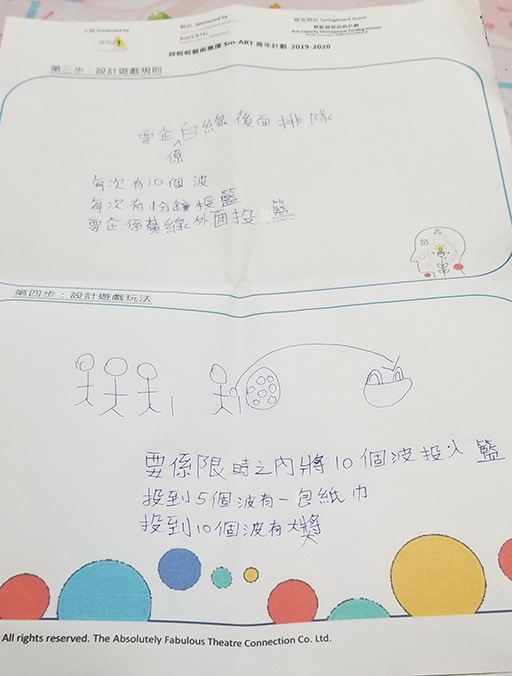 主辦 Presented by
贊助 Sponsored by
躍進資助 Springboard Grant
藝能發展資助計劃
Arts Capacity Development Funding Scheme
誇啦啦藝術集匯 Sm-ART 青年計劃 2019-2020
第三步：設計遊戲規則
要企係白線後面排隊
每次有10個波
每次有1分鐘投籃
要企係黃線外面投籃
第四步：設計遊戲玩法
要係限時之內將10個波投入籃
投到5個波有一包紙巾
投到10個波有大獎
All rights reserved. The Absolutely Fabulous Theatre Connection Co. Ltd.